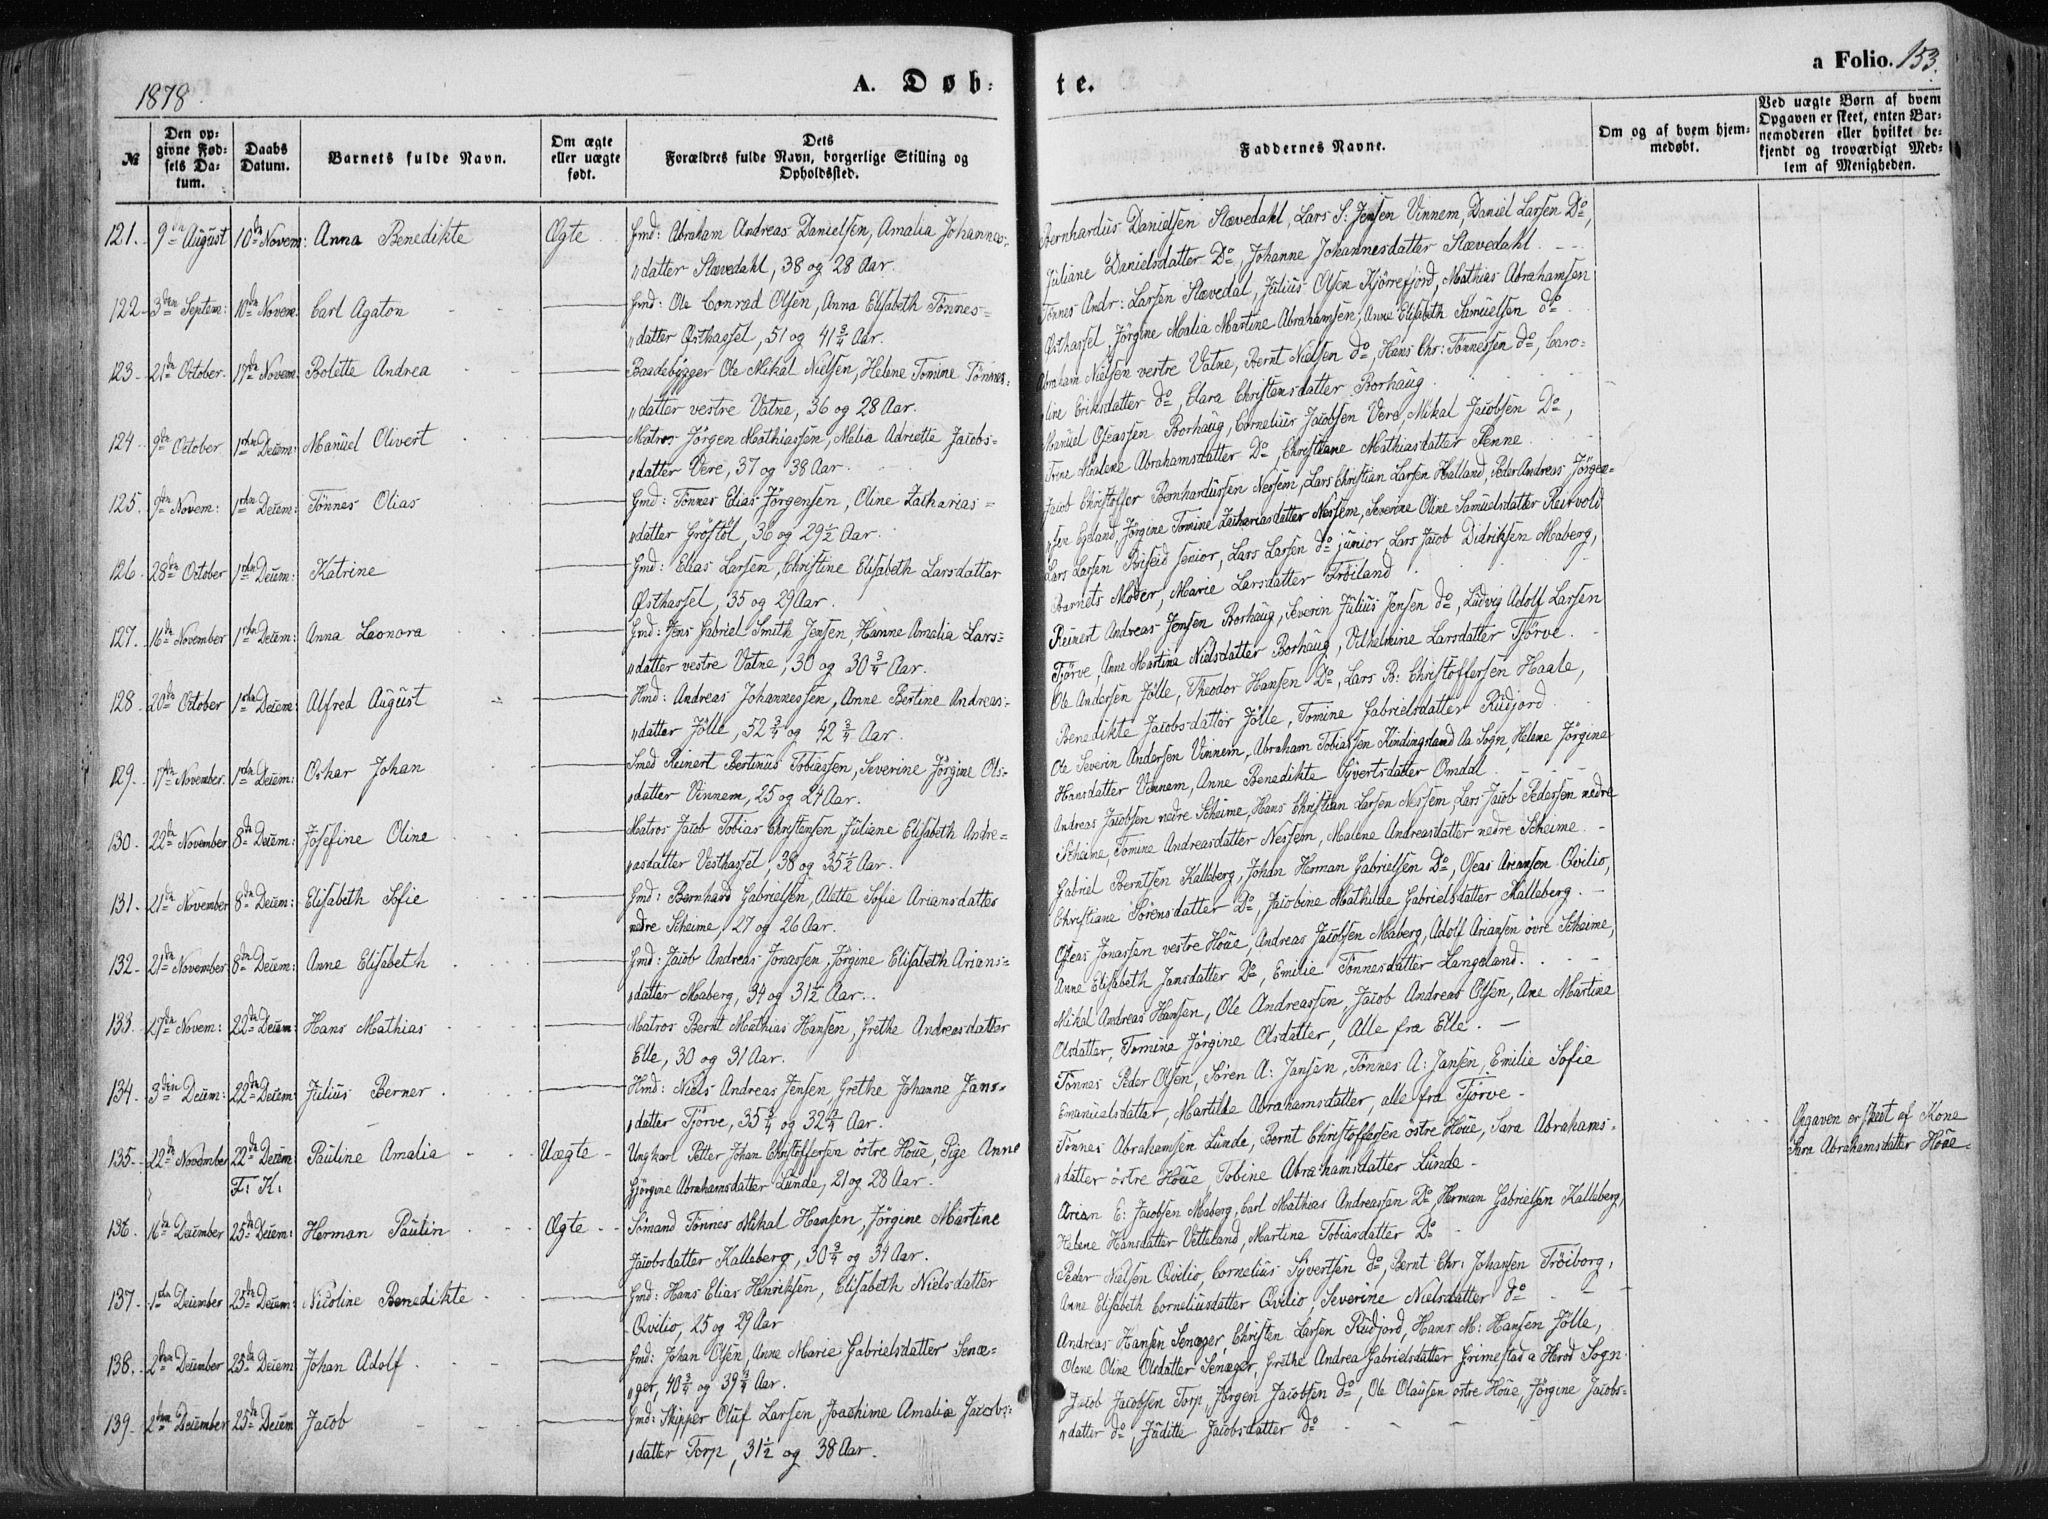 1878.
A. Døb-
te.
a Folio. 153.
№
Den opgivne Fødsels Datum.
Daabs Datum.
Barnets fulde Navn.
Om ægte eller uægte født.
Dets Forældres fulde Navn, borgerlige Stilling og Opholdssted.
Faddernes Navne.
Om og af hvem hjemmedøbt.
Ved uægte Børn af hvem Opgaven er skeet, enten Barnemoderen eller hvilket bekjendt og troværdigt Medlem af Menigheden.
121. 9de August 10de Novem: Anna Benedikte Ægte Gmd: Abraham Andreas Danielsen, Amalia Johannes-
"datter Stævedahl, 38 og 28 Aar.
Bernhardus Danielsen Stævedahl, Lars S: Jensen Vinnem, Daniel Larsen Do,
Juliane Danielsdatter Do, Johanne Johannesdatter Stævedahl.
122. 3die Septem: 10de Novem: Carl Agaton Gmd: Ole Conrad Olsen, Anna Elisabeth Tönnes=
"datter Østhassel, 51 og 41 3/4 Aar.
Tönnes Andr: Larsen Stævedal, Julius Olsen Kjörrefjord, Mathias Abrahamsen
Østhassel, Jörgine Malia Martine Abrahamsen, Anne Elisabeth Samuelsen do
123. 21de October. 17de Novem: Bolette Andrea Baadebygger Ole Mikal Nielsen, Helene Tomine Tönnes=
"datter vestre Vatne, 36 og 28 Aar.
Abraham Nielsen vestre Vatne, Bernt Nielsen do, Hans Chr: Tönnessen do, Caro-
"line Eriksdatter do, Clara Christensdatter Borhaug.
124. 9de October 1ste Decem: Manuel Olivert Matros Jörgen Mathiassen, Malia Adriette Jacobs=
"datter Vere, 37 og 38 Aar.
Manuel Oseassen Borhaug, Cornelius Jacobsen Vere, Mikal Jacobsen Do,
Trine Malene Abrahamsdatter Do, Christiane Mathiasdatter Penne
125. 9de Novem: 1ste Decem: Tönnes Olias Gmd: Tönnes Elias Jörgensen, Oline Zacharias=
"datter Gröstöl, 36 og 29 1/2 Aar.
Jacob Christoffer Bernhardussen Nessem, Lars Christian Larsen Helland, Peder Andreas Jörgen-
"sen Egeland, Jörgine Tomine Zachariasdatter Nessem, Severine Oline Samuelsdatter Reirvold
126. 28de October 1ste Decem: Katrine Gmd: Elias Larsen, Christine Elisabeth Larsdatter
Østhassel, 35 og 29 Aar.
Lars Larsen Briseid senior, Lars Larsen do junior, Lars Jacob Didriksen Maberg,
Barnets Moder, Marie Larsdatter Tröiland
127. 16de November 1ste Decem: Anna Leonora Gmd: Jens Gabriel Smith Jensen, Hanne Amalia Lars=
"datter vestre Vatne, 30 og 30 3/4 Aar.
Reinert Andreas Jensen Borhaug, Severin Julius Jensen do, Ludvig Adolf Larsen
Tjörve, Anne Martina Nielsdatter Borhaug, Vilhelmine Larsdatter Tjörve.
128 20de October 1ste Decem: Alfred August Hmd: Andreas Johannessen, Anne Bertine Andreas-
"datter Jölle, 52 3/4 og 42 3/4 Aar.
Ole Andersen Jölle, Theodor Hansen Do, Lars B: Christoffersen Haale,
Benedikte Jacobsdatter Jölle, Tomine Gabrielsdatter Rudjord.
129. 17de November. 1ste Decem: Oskar Johan Smed Reinert Bertinus Tobiassen, Severine Jörgine Ols-
"datter Vinnem, 25 og 24 Aar.
Ole Severin Andersen Vinnem, Abraham Tobiassen Kindingsland Aa Sogn, Helene Jörgine
Hansdatter Vinnem, Anne Benedikte Syvertsdatter Omdal
130. 22de November 8de Decem: Josefine Oline Matros Jacob Tobias Christensen, Juliane Elisabeth Andre=
"asdatter Vesthassel, 38 og 35 1/2 Aar.
Andreas Jacobsen nedre Scheime, Hans Christian Larsen Nessem, Lars Jacob Pedersen nedre
Scheime, Tomine Andreasdatter Nessem, Malene Andreasdatter nedre Scheime.
131. 21de November 8de Decem: Elisabeth Sofie Gmd: Bernhard Gabrielsen, Alette Sofie Ariansdatter
nedre Scheime, 27 og 26 Aar.
Gabriel Berntsen Kalleberg, Johan Herman Gabrielsen Do, Oseas Ariansen Qvilio,
Christiane Sörensdatter Do, Jacobine Mathilde Gabrielsdatter Kalleberg.
132. 21de November 8de Decem: Anne Elisabeth Gmd: Jacob Andreas Jonassen, Jörgine Elisabeth Arians=
"datter Maberg, 34 og 31 1/2 Aar.
Oseas Jonassen vestre Höue, Andreas Jacobsen Maberg, Adolf Ariansen övre Scheime,
Anne Elisabeth Jansdatter Do, Emilie Tönnesdatter Langeland.
133. 27de Novem: 22de Decem: Hans Mathias Matros Bernt Mathias Hansen, Grethe Andreasdatter
Elle, 30 og 31 Aar.
Mikal Andreas Hansen, Ole Andreassen, Jacob Andreas Olsen, Ane Martine
Olsdatter, Tomine Jörgine Olsdatter, Alle fra Elle.
134. 3die Decem: 22de Decem: Julius Berner. Hmd: Niels Andreas Jensen, Grethe Johanne Jans-
"datter Tjörve, 35 3/4 og 32 1/4 Aar.
Tönnes Peder Olsen, Sören A: Jansen, Tönnes A: Jansen, Emilie Sofie
Emanuelsdatter, Martilde Abrahamsdatter, alle fra Tjörve.
135. 22de November 22de Decem: F: K: Pauline Amalia Uægte Ungkarl Petter Johan Christoffersen östre Höue, Pige Anne
Gjörgine Abrahamsdatter Lunde, 21 og 28 Aar.
Tönnes Abrahamsen Lunde, Bernt Christoffersen östre Höue, Sara Abrahams-
"datter östre Höue, Tobine Abrahamsdatter Lunde
Opgaven er skeet af Kone
Sara Abrahamsdatter Höue.
136. 16de December 25de Decem: Herman Paulin Ægte Sömand Tönnes Mikal Hansen, Jörgine Martine
Jacobsdatter Kalleberg, 30 3/4 og 34 Aar.
Arian E: Jacobsen Maberg, Carl Mathias Andreassen Do, Herman Gabrielsen Kalleberg,
Helene Hansdatter Vetteland, Martine Tobiasdatter Do
137. 1ste December 25de Decem: Nicoline Benedikte Gmd: Hans Elias Henriksen, Elisabeth Nielsdatter
Qvilio, 25 og 29 Aar
Peder Nielsen Qvilio, Cornelius Syvertsen do, Bernt Chr: Johansen Tröiborg,
Anne Elisabeth Corneliusdatter Qvilio, Severine Nielsdatter do
138. 2den December 25de Decem Johan Adolf Gmd: Johan Olsen, Anne Marie Gabrielsdatter Senæ-
"ger, 40 3/4 og 39 3/4 Aar.
Andreas Hansen Senæger, Christen Larsen Rudjord, Hans M: Hansen Jölle,
Olene Oline Olsdatter Senæger, Grethe Andrea Gabrielsdatter Grimestad a Herod Sogn.
139. 2den December 25de Decem Jacob Gmd: Skipper Oluf Larsen, Joachime Amalia Jacobs:
"datter Torp, 31 1/2 og 38 Aar.
Jacob Jacobsen Torp, Jörgen Jacobsen do, Ole Olausen östre Höue, Jörgine Jacobs-
"datter do, Juditte Jacobsdatter do